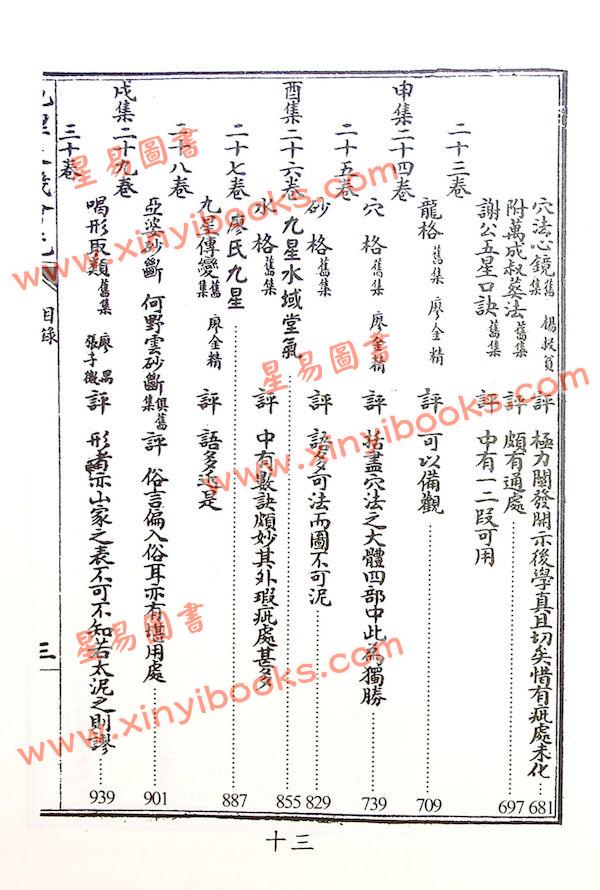 穴法心鏡舊集 楊叔貢 評 極力闡發開示後學真且切矣惜有疵處未化 681
附萬成叔葵法舊集 評 頗有通處 697
謝公五星口訣舊集 評 中有一二段可用
二十三卷
龍格舊集 廖金精 評 可以備觀 709
申集二十四卷
穴格舊集 廖金精 評 括盡穴法之大體四部中此為獨勝 739
二十五卷
砂格舊集 評 語多可法而圖不可泥 829
酉集二十六卷 九星水域堂氣 855
水格舊集 評 中有數訣頗妙其外瑕疵處甚多
二十七卷 廖氏九星 887
九星傳變舊集 廖金精 評 語多近是
二十八卷
亞波砂斷 何野雲砂斷俱舊集 評 俗言偏入俗耳亦有堪用處 901
戌集二十九卷
喝形取類舊集 廖禹 張子微 評 形者亦山家之表不可不知若太泥之則謬 939
三十卷
目錄
三
十三
星易圖書
www.xinyibooks.com
星易圖書
www.xinyibooks.com
星易圖書
www.xinyibooks.com
星易圖書
www.xinyibooks.com